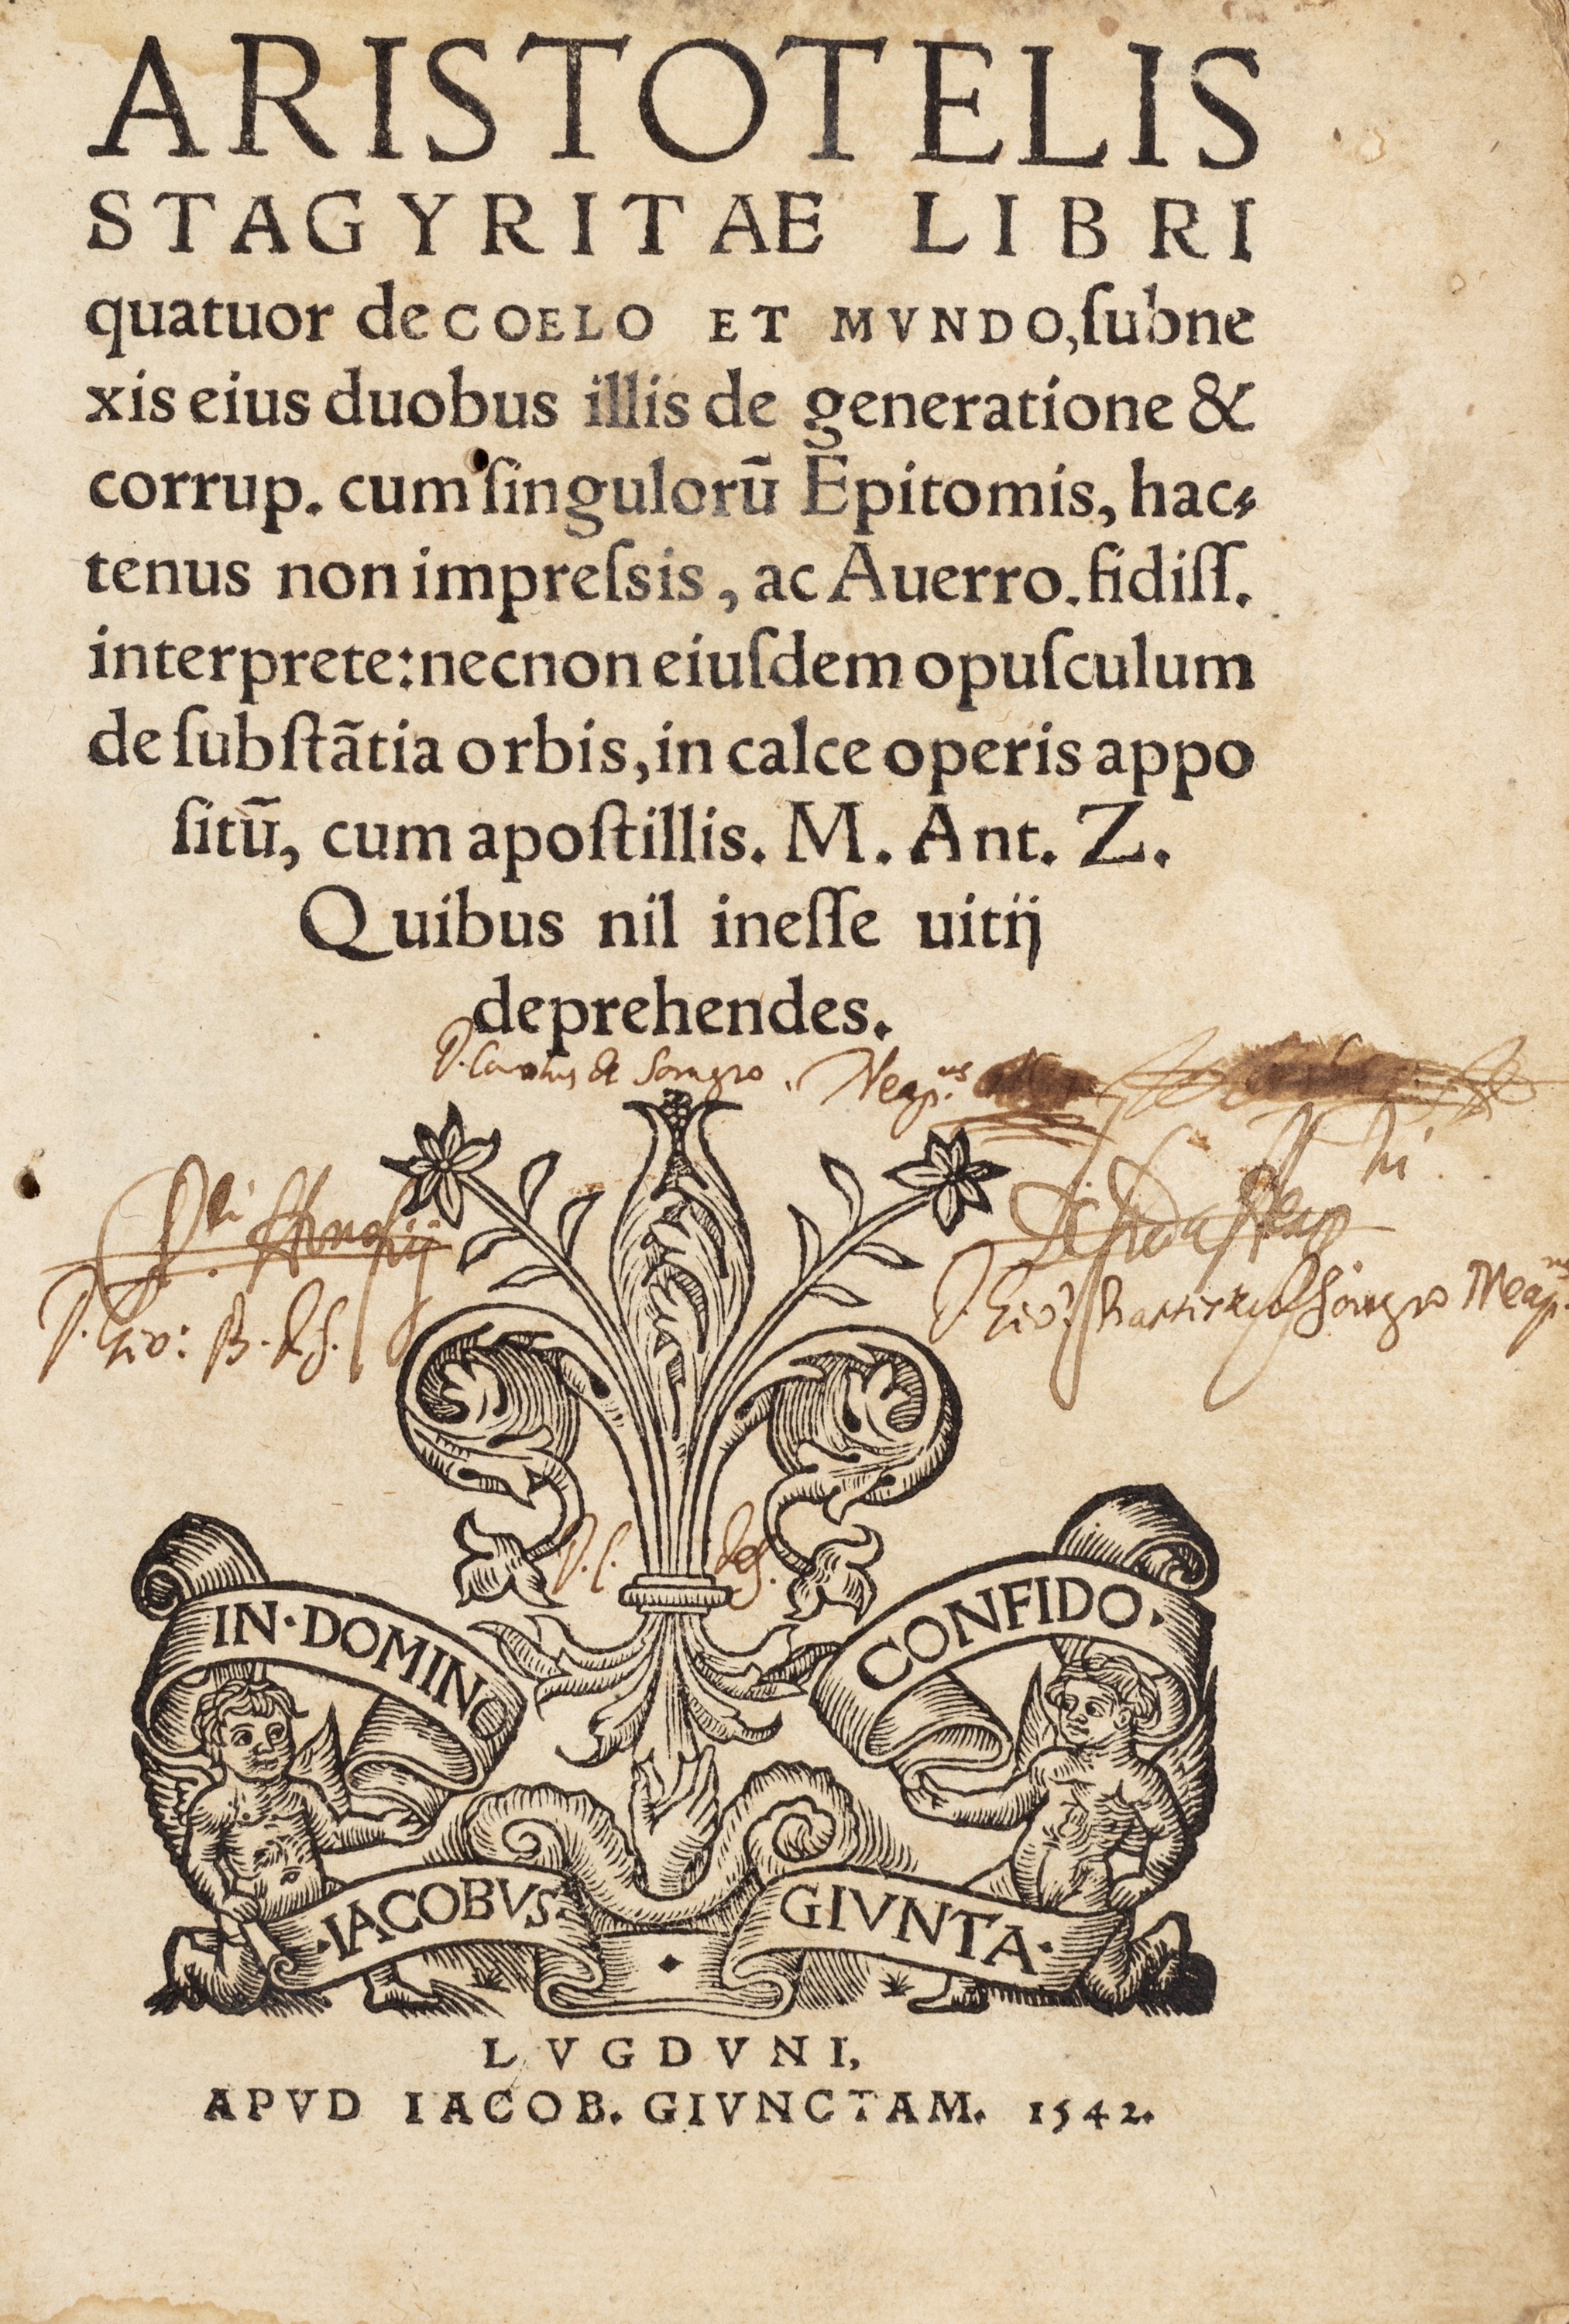 ARISTOTELIS
STAGYRITAE LIBRI
quatuor de COELO ET MVNDO, ſubne
xis eius duobus illis de generatione &
corrup. cum ſingulorū Epitomis, hac⸗
tenus non impreſsis, ac Auerro. fidiſſ.
interprete: necnon eiuſdem opuſculum
de ſubſtãtia orbis, in calce operis appo
ſitū, cum apoſtillis. M. Ant. Z.
Quibus nil ineſſe uitij
deprehendes.
D. Carolus de Sangro. Neap.us
D. Gio: B. d. S.
D. Gio: Battista de Sangro Neap.us
D. C. de S.
IN·DOMINO CONFIDO.
·IACOBVS· GIVNTA·
LVGDVNI,
APVD IACOB. GIVNCTAM. 1542.